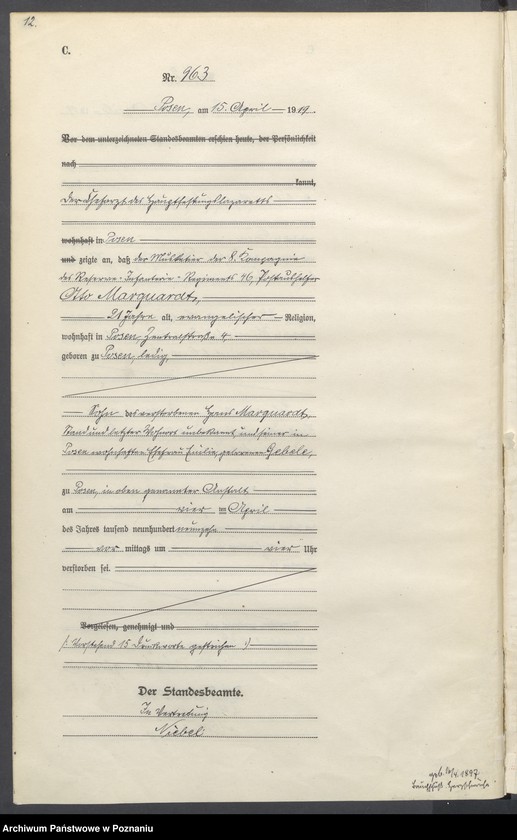 12.
C.
Nr. 963
Posen, am 15. April 1919.
Vor dem unterzeichneten Standesbeamten erschien heute, der Persönlichkeit
nach
kannt,
Der Chefarzt des Hauptfestungslazaretts
wohnhaft in Posen
und zeigte an, daß der Musketier der 8. Kompagnie
des Reserve-Infanterie-Regiments 46, Postaushelfer
Otto Marquardt,
21 Jahre alt, evangelischer Religion,
wohnhaft in Posen, Zentralstraße 4
geboren zu Posen, ledig,
Sohn des verstorbenen Hans Marquardt,
Stand und letzter Wohnort unbekannt, und seiner in
Posen wohnhaften Ehefrau Emilie, geborenen
zu Posen, in oben genannter Anstalt
am vier im April
des Jahres tausend neunhundert neunzehn
vor mittags um vier Uhr
verstorben sei.
Vorgelesen, genehmigt und
(: Vorstehend 15 Druckworte gestrichen :)
Der Standesbeamte.
In Vertretung
Niebel
geb. 1897
Archiwum Państwowe w Poznaniu